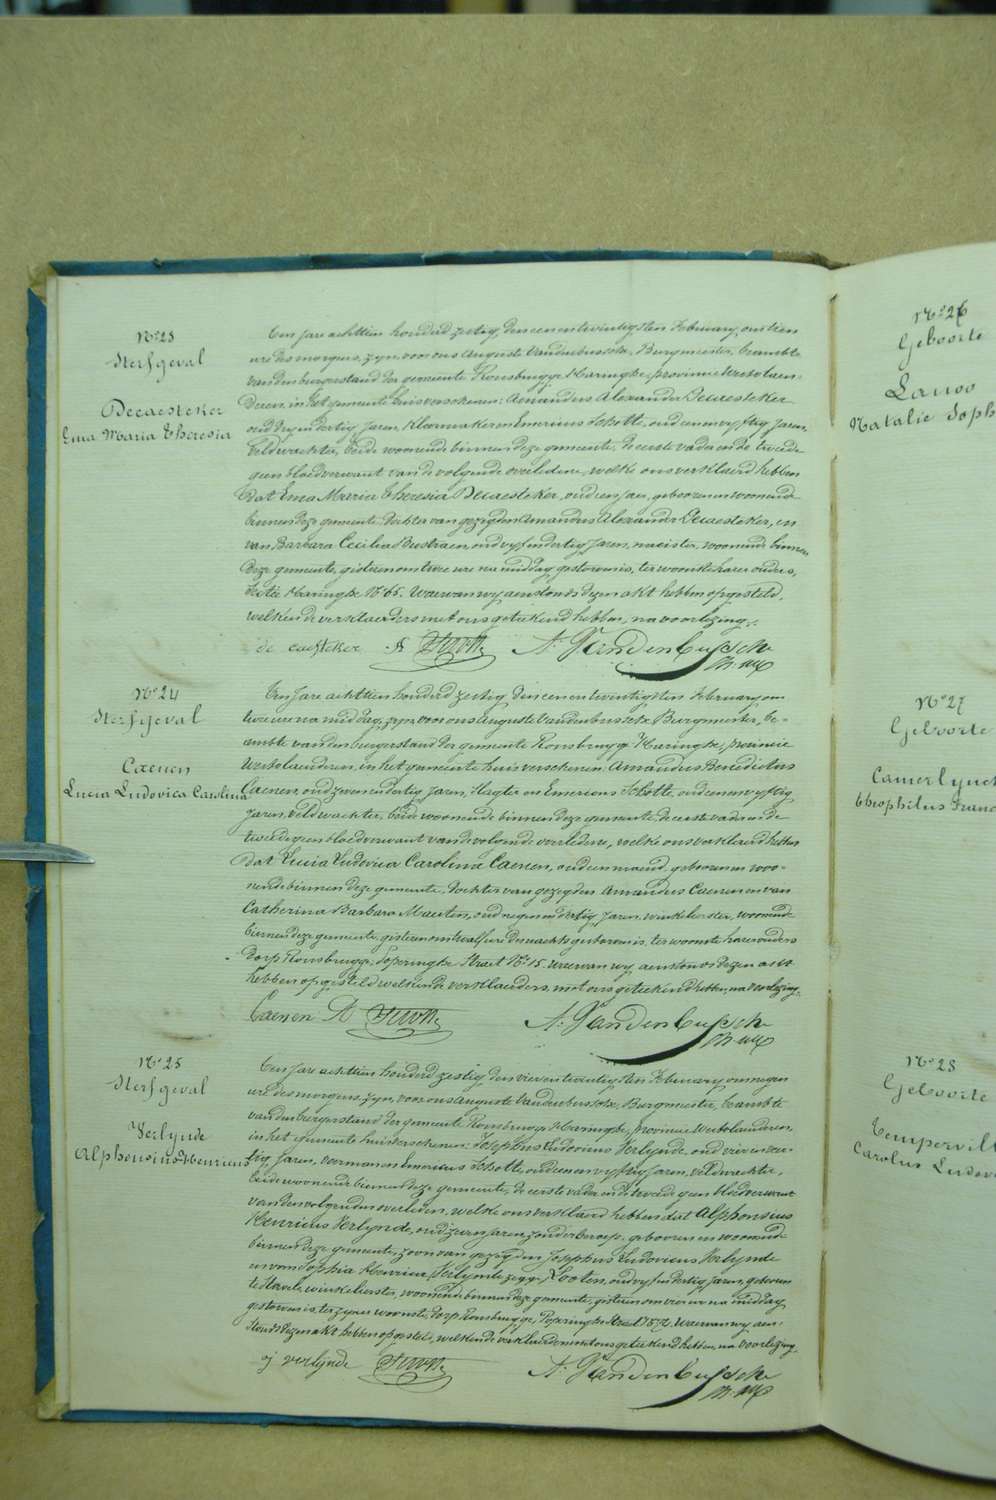 N.o 23
Sterfgeval
Decaesteker
Ema Maria Theresia
Ten jare achttien honderd zestig, den een en twintigsten February, om tien
ure des morgens, zyn voor ons Auguste Vandenbussche, Burgmeester, beambte
van den burgerstand der gemeente Rousbrugge Haringhe, provincie Westvlaen-
deren, in het gemeente huis verschenen: Amandus Alexander Decaesteker
oud dry en dertig jaren, Kleermaker en Emerius Schotte, oud een en vyftig jaren,
Veldwachter, beide woonende binnen deze gemeente, de eerste vader en de tweede
geen bloedverwant van de volgende overledene, welke ons verklaerd hebben
dat Ema Maria Theresia Decaesteker, oud een jaer, geboren en woonende
binnen deze gemeente, dochter van gezegden Amandus Alexander Decaesteker, en
van Barbara Cecilia Beestraen, oud vyf en dertig jaren, naeister, woonende binnen
deze gemeente, gisteren om twee ure na middag gestorven is, ter woonste harer ouders,
Haringhe N.o 65. Waervan wy aenstonds dezen akt hebben opgesteld,
welken de verklaerders met ons geteekend hebben, na voorlezing.
de caesteker Schotte A. Vandenbussche
N.o 24
Sterfgeval
Caenen
Lucia Ludovica Carolina
Ten jare achttien honderd zestig, den een en twintigsten February om
twee ure na middag, zyn voor ons Auguste Vandenbussche Burgmeester, be-
ambte van den burgerstand der gemeente Rousbrugge Haringhe, provincie
Westvlaenderen, in het gemeente huis verschenen: Amandus Benedictus
Caenen, oud zeven en dertig jaren, en Emerius Schotte, oud een en vyftig
jaren, Veldwachter, beide woonende binnen deze gemeente de eerste vader en de
tweede geen bloedverwant van de volgende overledene, welke ons verklaerd hebben
dat Lucia Ludovica Carolina Caenen, oud een maend, geboren en woo-
nende binnen deze gemeente, dochter van gezegden Amandus Caenen en van
Catherina Barbara Maerten, oud negen en dertig jaren, winkelierster, woonende
binnen deze gemeente, gisteren om twaelf ure des nachts gestorven is, ter woonste harer ouders
dorp Rousbrugge, Poperinghe Straet N.o 15. Waervan wy aenstonds dezen akt
hebben opgesteld welken de verklaerders, met ons geteekend hebben, na voorlezing.
Caenen Schotte A. Vandenbussche
N.o 25
Sterfgeval
Verlynde
Alphonsius Henricus
Ten jare achttien honderd zestig den vier en twintigsten February om negen
ure des morgens, zyn, voor ons Auguste Vandenbussche, Burgmeester, beambte
van den burgerstand der gemeente Rousbrugge Haringhe, provincie Westvlaanderen,
in het gemeente huis verschenen: Josephus Ludovicus Verlynde, oud vier en veer-
tig jaren, voerman en Emerius Schotte, oud een en vyftig jaren, veldwachter,
beide woonende binnen deze gemeente, de eerste vader en de tweede geen bloedverwant
van den volgenden overleden, welke ons verklaerd hebben dat Alphonsius
Henricus Verlynde, oud jaren, zonder beroep, geboren en woonende
binnen deze gemeente, zoon van gezegden Josephus Ludovicus Verlynde
en van Sophia Henrica, Looten, oud vyf en dertig jaren, geboren
te Stavele, winkelierster, woonende binnen deze gemeente, gisteren om vier ure na middag
gestorven is, ter zyner woonste, dorp Rousbrugge, Poperinghe Straet, Waervan wy aen-
stonds dezen akt hebben opgesteld, welken de verklaerders met ons geteekend hebben, na voorlezing.
verlijnde Schotte A. Vandenbussche
N.o 26
Geboorte
Lauoo
Natalie Soph
N.o 27
Geboorte
Camerlynck
Theophilus Franc
N.o 28
Geboorte
Tempervill
Carolus Ludov